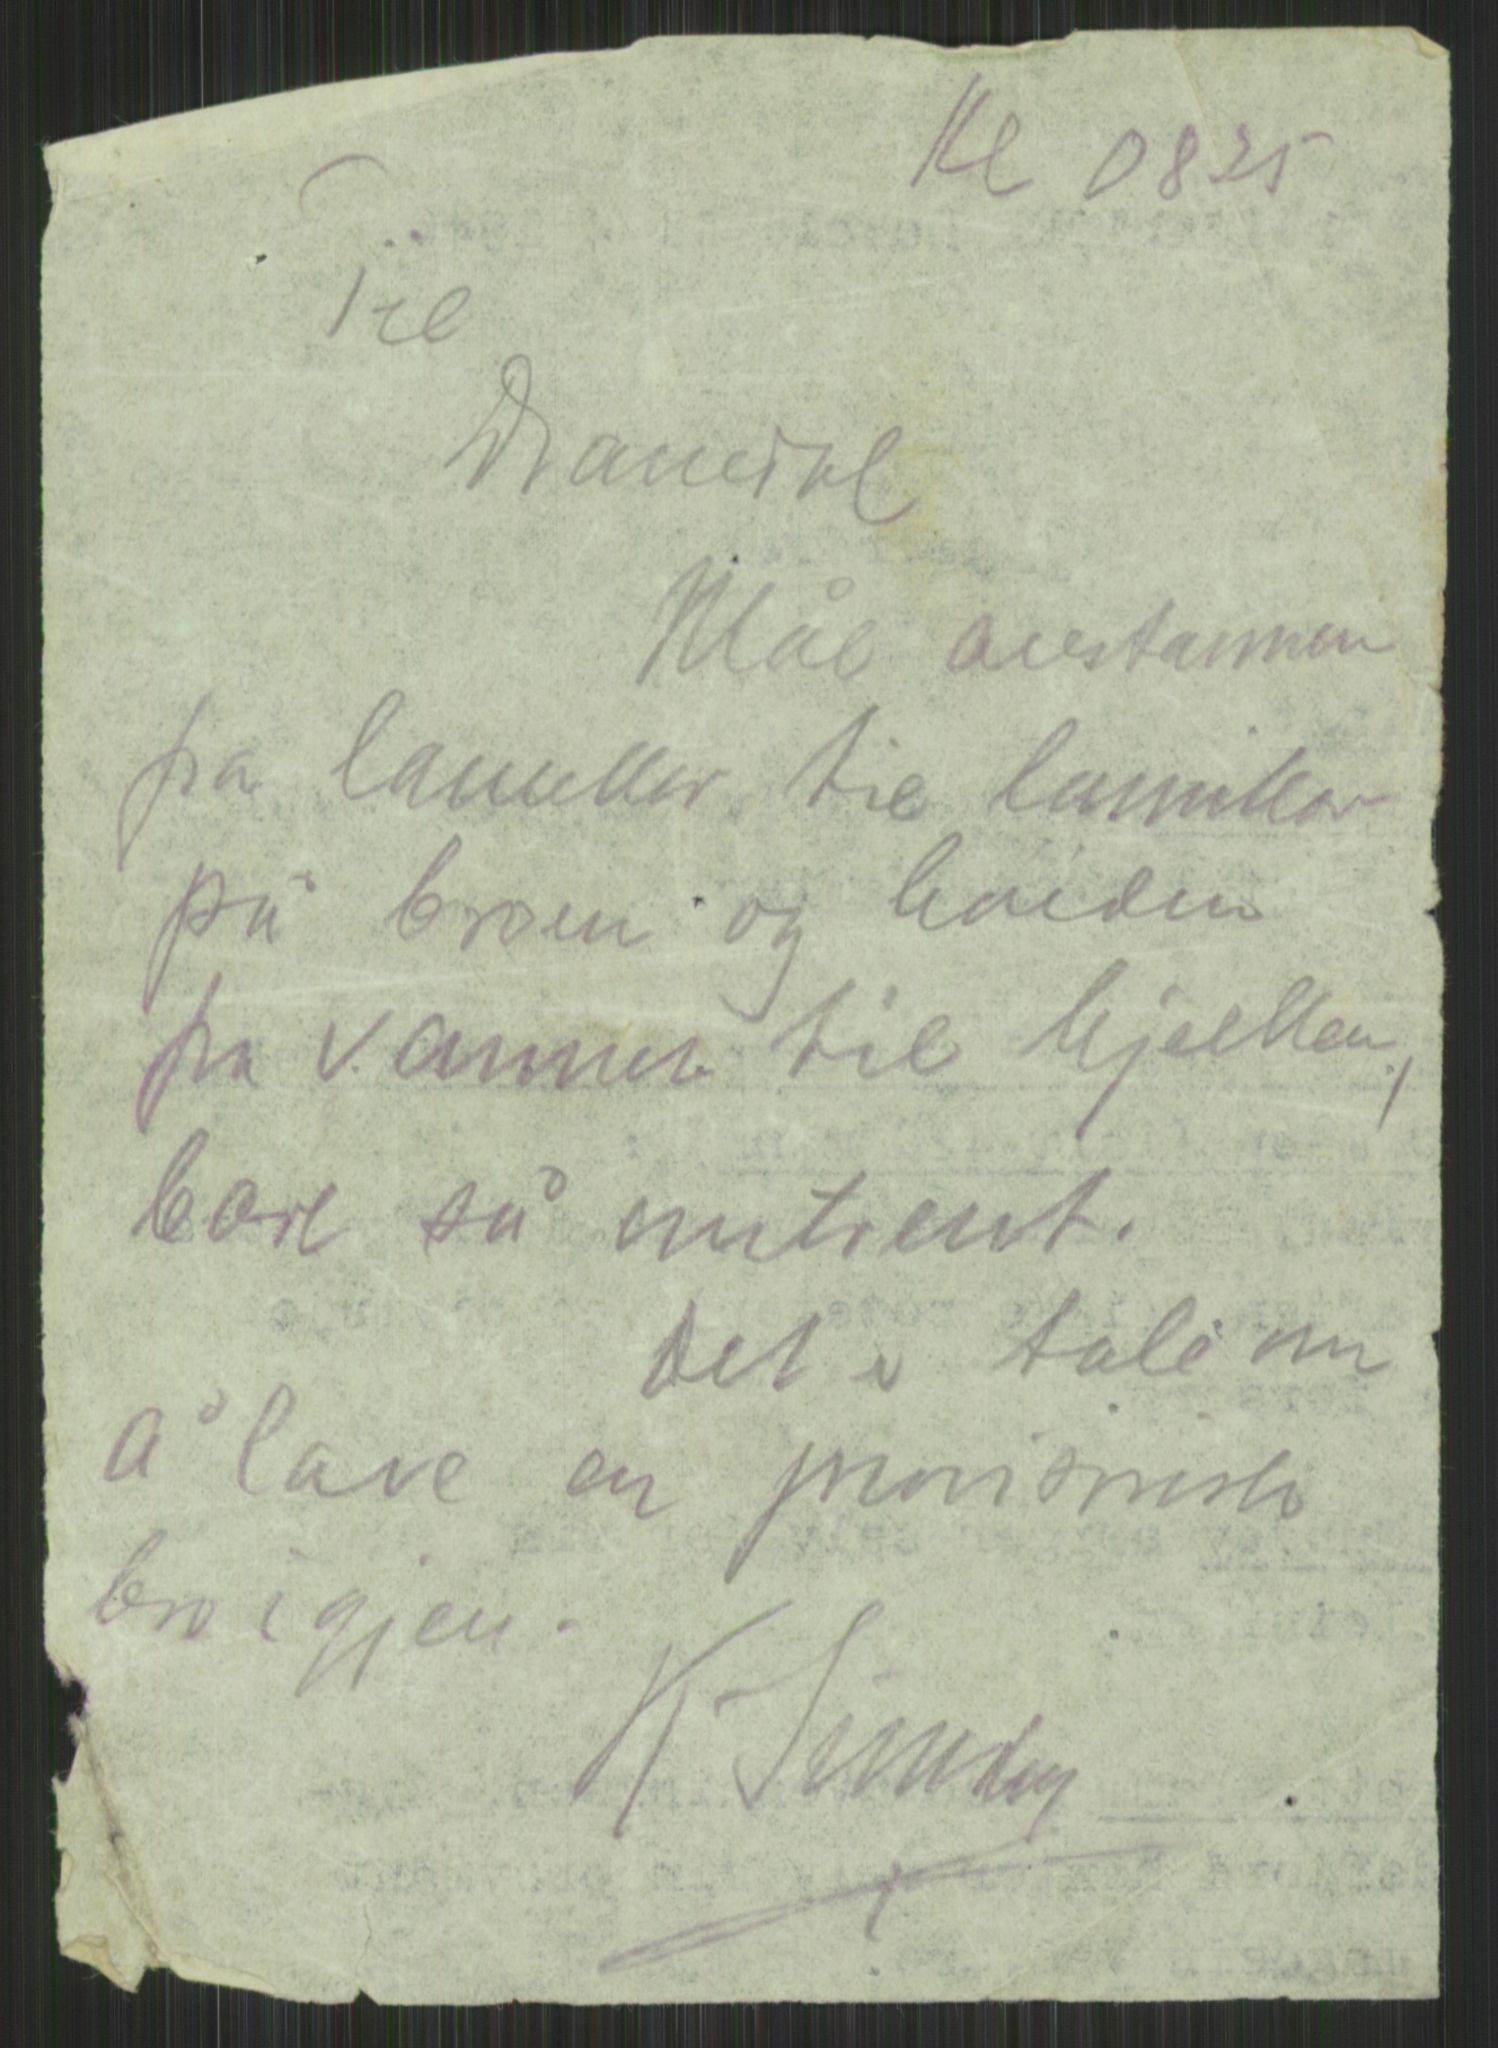 Kl 0835
Til
Må avstannen
fra lannkar til lannkar
på broen og høiden
fra vannet til bjelken,
bare så omtrent.
Det er tale om
å lave en provisorisk
bro igjen.
K Sundby